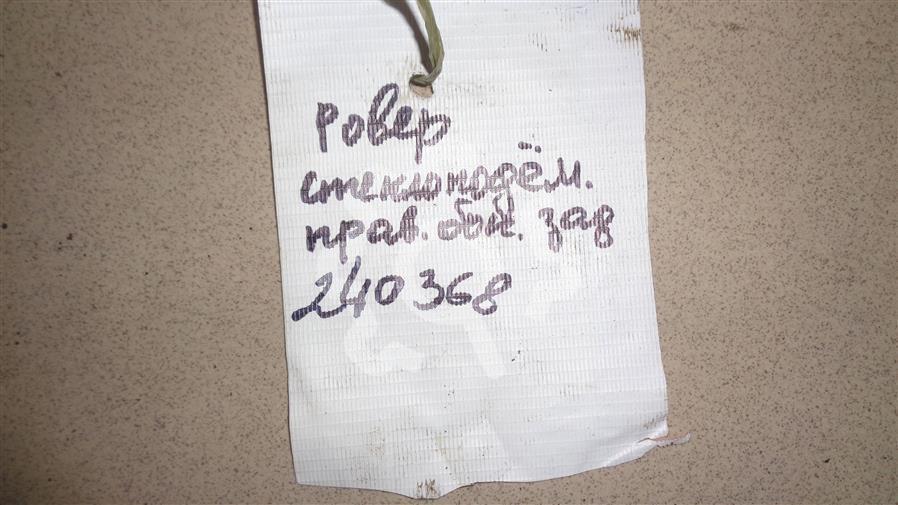 Ровер
стеклоподъём.
прав. обж. зад
240368